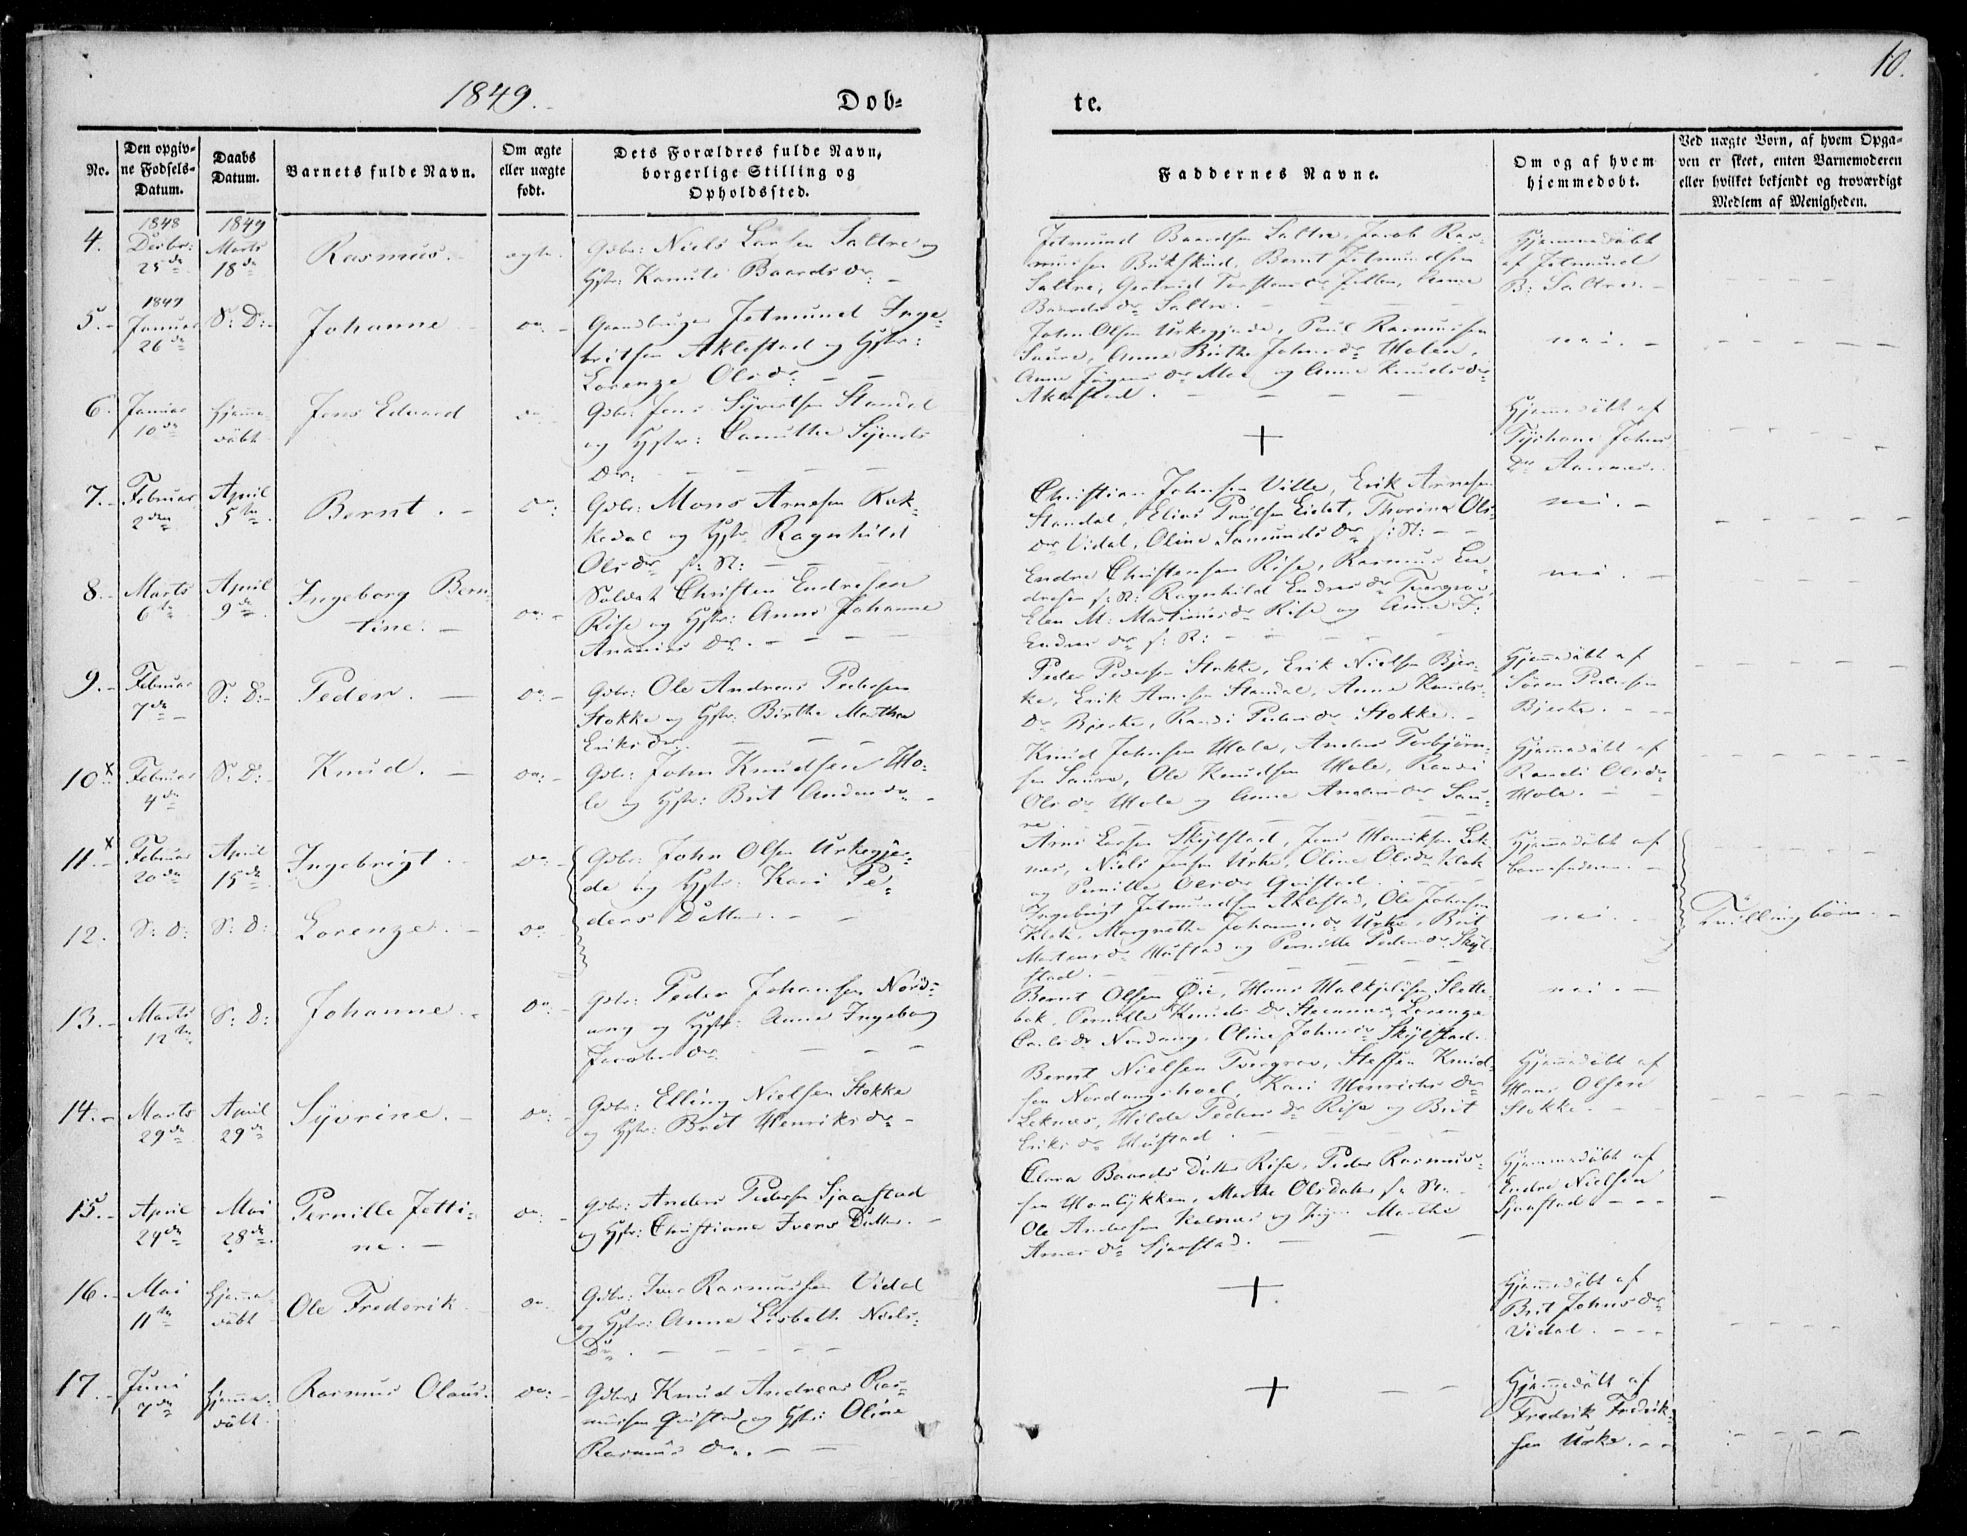 1849.
Dob-
te.
10.
No.
Den opgiv-
ne Fodsels-
Datum.
Daabs
Datum.
Barnets fulde Navn.
Om ægte
eller uægte
født.
Dets Forældres fulde Navn,
borgerlige Stilling og
Opholdssted.
Faddernes Navne.
Om og af hvem
hjemmedobt.
Ved uægte Born, af hvem Opga-
ven er skeet, enten Barnemoderen
eller hvilket bekjendt og troværdigt
Medlem af Menigheden.
4.
1848
Decbr:
25de
1849
Marts
18de
Rasmus.
ægte.
Gdbr: Niels Larsen Saltre og
Hstr: Baardsdr
Jetmund Baardsen Saltre, Jacob Ras-
musen Bukskind, Bernt Jetmundsen
Saltre, Anne
Baardsdr Saltre.
Hjemmedöbt
af Jetmund
B: Saltre.
5.
1849
Januar
26de
S: D:
Johanne
do
Gaardbruger Jetmund Inge-
britsen Aklestad og Hstr:
Lorenze Olsdr:
John Olsen Urkegjerde, Paul Rasmussen
Saure, Anne Birthe Johnsdr Molen,
Anne og Anne Knudsdr
Aklestad.
nei.
6.
Januar
10de
Hjemme
döbt
Jens Edvard
do
Gdbr: Jens Sÿvertsen Standal
og Hstr: Sÿverts
Dr:
+
Hjemmedöbt af
Johns
Dr
7.
Februar
2den
April
5te
Bernt.
do:
Gdbr: Mons Arnesen Kok-
kedal og Hstr Ragnhild
Olsdr s: St:
Christian Johnsen Ville, Erik Arnesen
Standal, Elias Paulsen Eidet, Thorine Ols-
dr Vidal, Oline Samundsdr s: St:
nei.
8.
Marts
6te
April
9de
Ingeborg Bern-
tine.
do:
Soldat Christen Endresen
Rise og Hstr: Anne Johanne
Ananias Dr.
Endre Christensen Rise, Rasmus En-
dresen s: St: Ragnhild Endresdr Tvergrov,
Elen M: Martinusdr Rise og Anne J:
Endresdr s: R:
nei.
9.
Februar
7de
S: D:
Peder.
do:
Gdbr: Ole Andreas Pedersen
Stokke og Hstr: Birthe Marthe
Eriksdr.
Peder Pedersen Stokke, Erik Nielsen Bjer-
ke, Erik Arnesen Standal, Anne Knuds-
dr Bjerke, Randi Pedersdr Stokke.
Hjemmedöbt af
Sören Pedersen
Bjerke.
10x
Februar
4de
S: D:
Knud.
do:
Gdbr: John Knudsen Mo-
le og Hstr: Brit Andersdr
Knud Johnsen Mole, Anders Torbjörn-
sen Saure, Ole Knudsen Mole, Randi
Olsdr Mole og Anne Andersdr Sau-
re
Hjemmedöbt af
Randi Olsdr
Mole.
11x
Februar
20de
April
15de
Ingebrigt.
do:
Gdbr: John Olsen Urkegjer-
de og Hstr: Kari Pe-
ders Datter.
Arne Larsen Skÿlstad, Jens Henriksen Lek-
nes, Niels Jensen Urke, Oline Olsdr Klok
og Pernille Olsdr Qvistad.
Hjemmedöbt af
barnefaderen.
12.
S: D:
S: D:
Lorenze.
do:
Ingebrigt Jetmundsen Aklestad, Ole Johnsen
Klok, Margrethe Johannesdr Urke, Brit
Mortensdr Mustad og Pernille Pedersdr Skÿl-
stad.
nei.
Tvillingbörn.
13.
Marts
12te
S: D:
Johanne.
do:
Gdbr: Peder Johansen Nord-
ang og Hstr: Anne Ingeborg
Jacobsdr
Bernt Olsen Øie, Hans Slette-
bak, Pernille Knudsdr Lorenze
Nordang, Oline Johnsdr Skÿlstad.
nei.
14.
Marts
29de
April
29de
Sÿvrine.
do:
Gdbr: Elling Nielsen Stokke
og Hstr: Brit Henriksdr
Bernt Nielsen Tvergrov, Steffen Knud-
sen Nordangshoel, Kari Henriksdr
Leknes, Hilde Pedersdr Rise og Brit
Eriksdr Mustad.
Hjemmedöbt af
Hans Olsen
Stokke.
15.
April
24de
Mai
28de
Pernille Jetti-
ne.
do:
Gdbr: Anders Pedersen Sjaastad
og Hstr: Christiane Ivers Datter.
Clara Baards Datter Rise, Peder Rasmus-
sen Monlÿkken, Marthe Olsdatter s: St:
Ole Andersen Kalnes og Marthe
Arnesdr Sjaastad.
Hjemmedöbt af
Endre Nielsen
Sjaastad
16.
Mai
11te
Hjemme
döbt
Ole Frederik
do
Gdbr: Iver Rasmussen Vidal
og Hstr: Anne Lisbeth Niels-
Dr.
+
Hjemmedöbt af
Brit Johnsdr
Vidal.
17.
Juni
7de
Hjemme-
döbt.
Rasmus Olaus.
do:
Gdbr: Knud Andreas Ras-
musen Qvistad og Hstr: Oline
Rasmusdr.
+
Hjemmedöbt af
Fredrik Fredrik-
sen Urke.